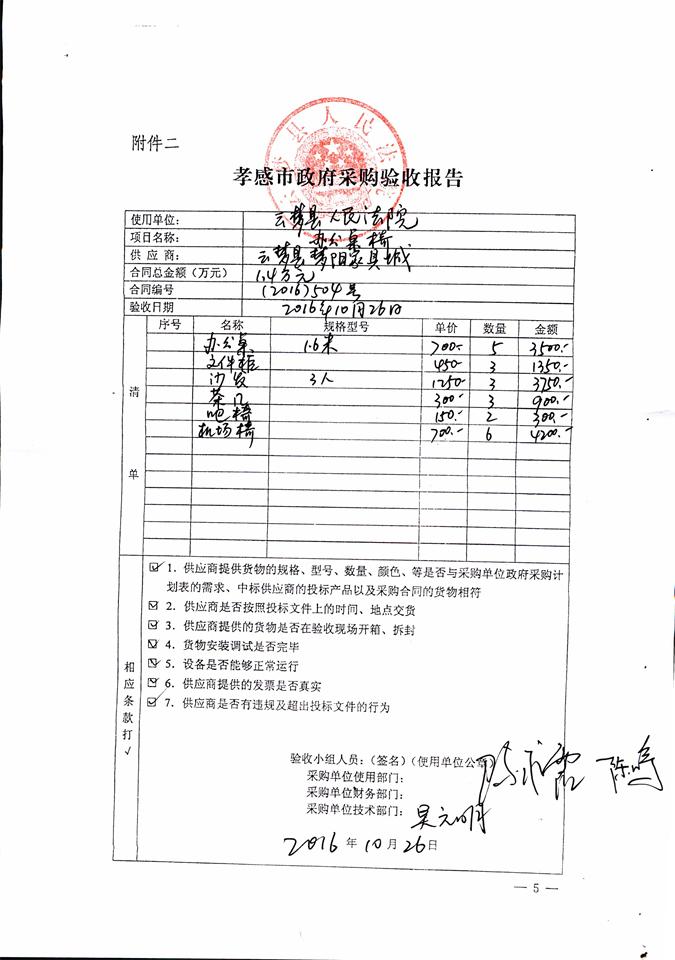 附件二
县人民法
孝感市政府采购验收报告
使用单位: 云梦县人民法院
项目名称: 办公桌椅
供 应 商: 云梦县梦阳家具城
合同总金额(万元) 1.4万元
合同编号 (2016)504号
验收日期 2016年10月26日
清单
序号 名称 规格型号 单价 数量 金额
办公桌 1.6米 700- 5 3500.-
文件柜 450- 3 1350.-
沙发 3人 1250- 3 3750.-
茶几 300- 3 900.-
吧椅 150.- 2 300.-
机场椅 700.- 6 4200.-
相应条款打√
☑ 1. 供应商提供货物的规格、型号、数量、颜色、等是否与采购单位政府采购计
划表的需求、中标供应商的投标产品以及采购合同的货物相符
☑ 2. 供应商是否按照投标文件上的时间、地点交货
☑ 3. 供应商提供的货物是否在验收现场开箱、拆封
☑ 4. 货物安装调试是否完毕
☑ 5. 设备是否能够正常运行
☑ 6. 供应商提供的发票是否真实
☑ 7. 供应商是否有违规及超出投标文件的行为
验收小组人员:(签名)(使用单位公章)
采购单位使用部门:
采购单位财务部门:
采购单位技术部门: 吴元明
2016 年 10 月 26 日
— 5 —